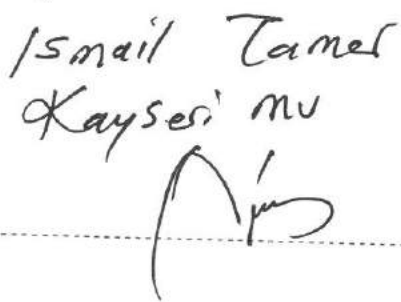 Ismail Tamer
Kayseri mv